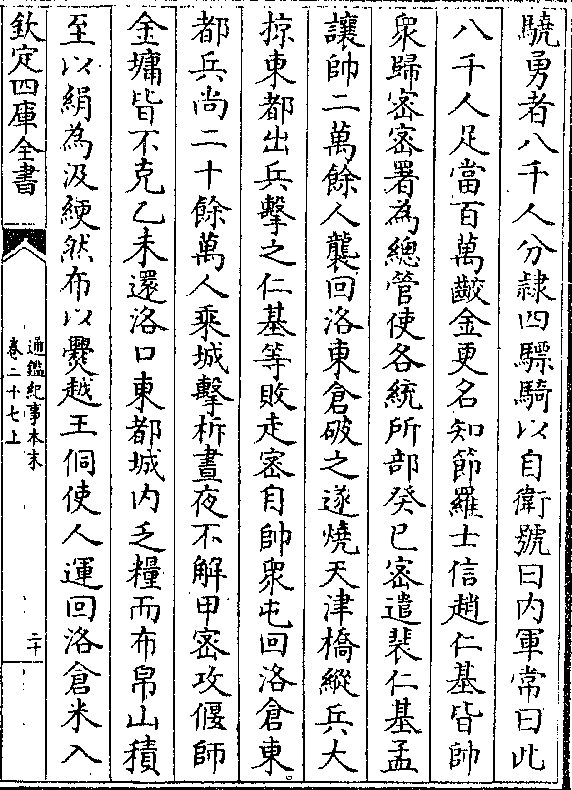 驍勇者八千人分隷四驃騎以自衛號曰内軍常曰此
八千人足當百萬齩金更名知節羅士信趙仁基皆帥
衆歸密密署為總管使各統所部癸巳密遣裴仁基孟
讓帥二萬餘人襲回洛東倉破之遂燒天津橋縱兵大
掠東都出兵擊之仁基等敗走密自帥衆屯回洛倉東
都兵尚二十餘萬人乘城擊柝晝夜不解甲密攻偃師
金墉皆不克乙未還洛口東都城内乏糧而布帛山積
至以絹為汲綆然布以爨越王侗使人運回洛倉米入
欽定四庫全書
通鑑紀事本末
卷二十七上
二十